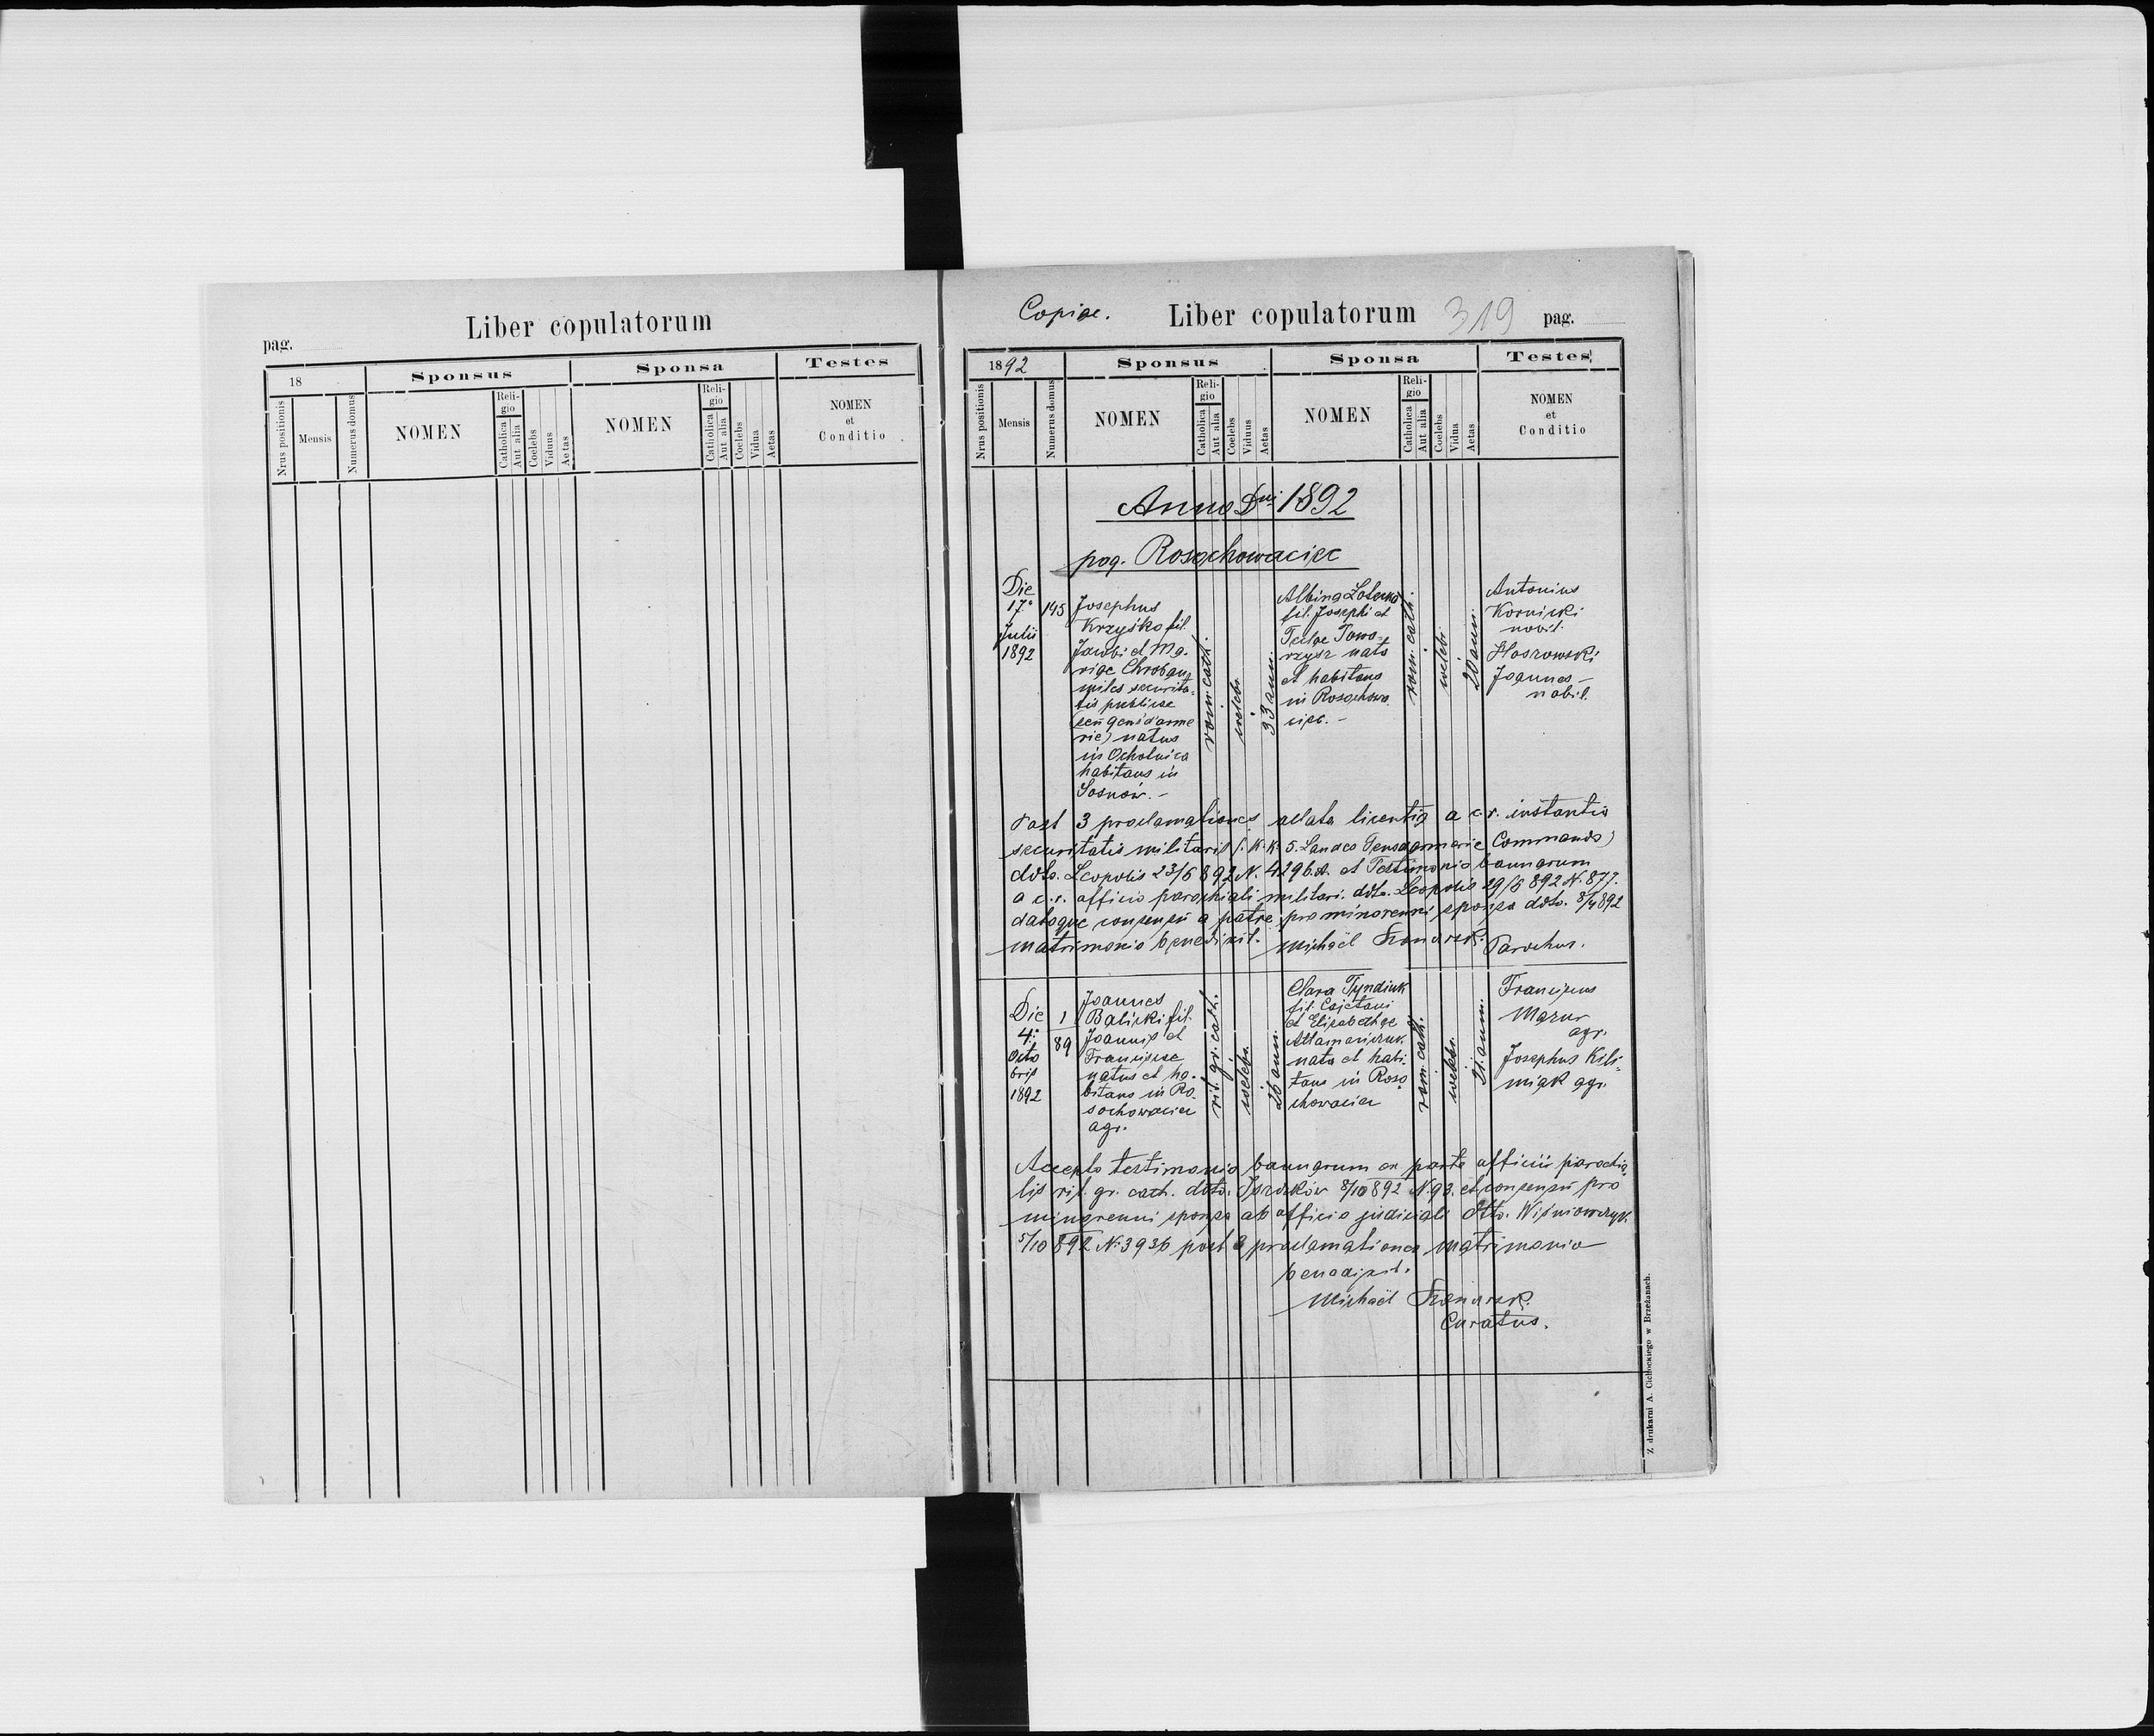 Liber copulatorum
pag.
18
Sponsus
Sponsa
Testes
Nrus positionis
Mensis
Numerus domus
NOMEN
Reli-
gio
Catholica
Aut alia
Coelebs
Viduus
Aetas
NOMEN
Reli-
gio
Catholica
Aut alia
Coelebs
Vidua
Aetas
NOMEN
et
Conditio
Copiae.
Liber copulatorum
319
pag.
1892
Sponsus
Sponsa
Testes
Nrus positionis
Mensis
Numerus domus
NOMEN
Reli-
gio
Catholica
Aut alia
Coelebs
Viduus
Aetas
NOMEN
Reli-
gio
Catholica
Aut alia
Coelebs
Vidua
Aetas
NOMEN
et
Conditio
Anno Dni 1892
pag. Rosochowaciec
Die
17a
Julii
1892
145
Josephus
Krzyśko fil.
Jacobi et Ma-
riae
miles securita-
tis publicae
(seu gens d'arme
rie) natus
in Ochotnica
habitans in
Sosnów. -
rom. cath.
coelebs
33 ann.
Albina
fil. Josephi et
Teclae Towa-
rzysz nata
et habitans
in Rosochowa
ciec. -
rom. cath.
coelebs
20 ann.
Antonius
Kornicki
nobil.
Joannes -
nobil.
Post 3 proclamationes allata licentia a c. r. instantia
securitatis militaris (: K. K. 5. Landes Gensdarmerie Commando)
ddto. Leopolis 23/6 892 N. 4296 et Testimonio bannorum
a c. r. officio parochiali militari. ddto. Leopolis 29/6 892 N. 877.
datoque consensu a patre pro minorenni sponsa ddto. 892
matrimonio benedixit. Michaël Parochus.
Die
4a
Octo
bris
1892
1
89
Joannes
Balicki fil.
Joannis et
Franciscae
natus et ha-
bitans in Ro-
sochowaciec
agr.
rit. gr. cath.
coelebs.
26 ann.
Clara Tyndiuk
fil. Cajetani
et Elisabethae
nata et habi-
tans in Roso
chowaciec
rom. cath.
coelebs.
21. ann.
Franciscus
Mazur
agr.
Josephus Kili-
miak agr.
Accepto testimonio bannorum ex parte officii parochia
lis rit. gr. cath. ddto. 8/10 892 N. 93. et consensu pro
minorenni sponsa ab officio judiciali ddto. Wiśniowczyk
5/10 892 N. 3936 post 3 proclamationes matrimonio
benedixit.
Michaël
Curatus.
Z drukarni A. Cichockiego w Brzeżanach.